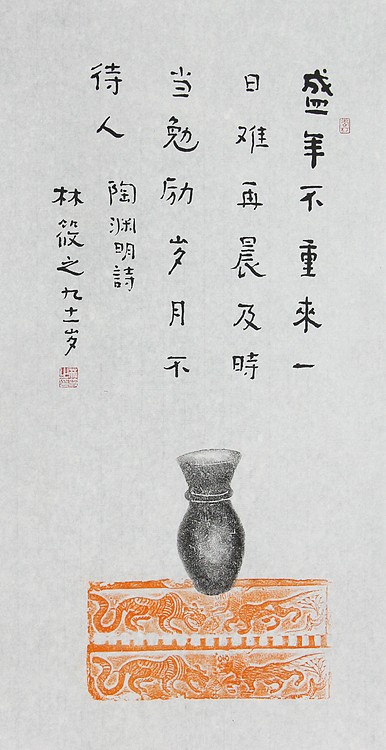 盛年不重來一
日难再晨及時
当勉励岁月不
待人
陶渊明詩
林筱之九十一岁